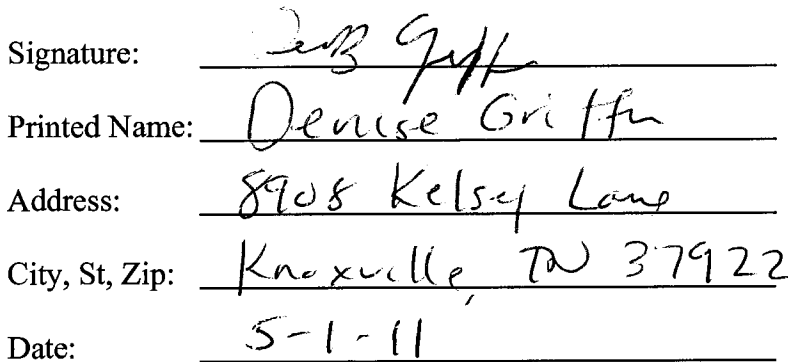 Signature:
Printed Name: Denise Griffin
Address: 8908 Kelsey Lane
City, St, Zip: Knoxville, TN 37922
Date: 5-1-11